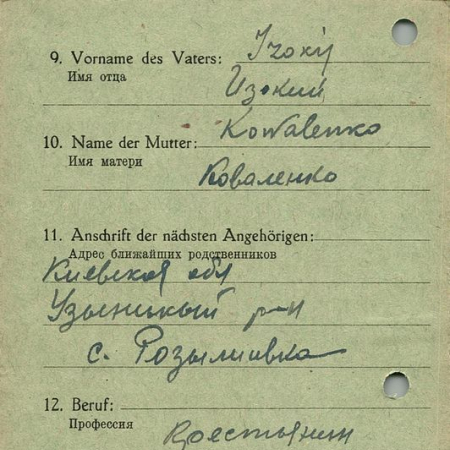 9. Vorname des Vaters: Izokij
Имя отца
Изокий
Kowalenko
10. Name der Mutter:
Имя матери
Коваленко
11. Anschrift der nächsten Angehörigen:
Адрес ближайших родственников
Киевская обл
Узыницкый р-н
с. Розалиевка
12. Beruf:
Профессия
Крестьянин